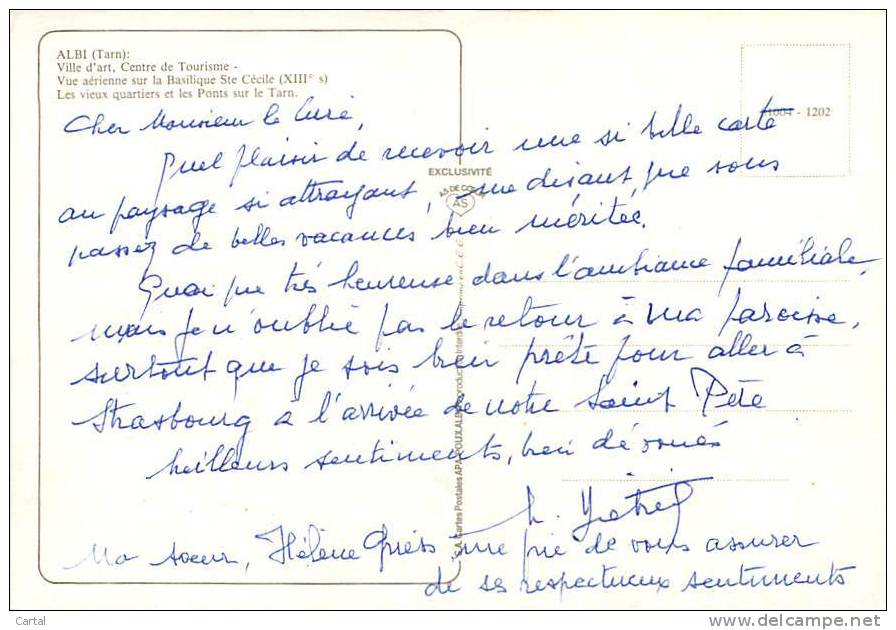 ALBI (Tarn):
Ville d'art, Centre de Tourisme -
Vue aérienne sur la Basilique Ste Cécile (XIII° s)
Les vieux quartiers et les Ponts sur le Tarn.
1004 - 1202
EXCLUSIVITÉ
AS
Cher Monsieur le Curé,
Quel plaisir de recevoir une si belle carte
au paysage si attrayant, me disant que vous
passez de belles vacances bien méritée.
Quoi que très heureuse dans l'ambiance familiale,
mais je n'oublie pas le retour à ma paroisse,
surtout que je sois bien prête pour aller à
Strasbourg à l'arrivée de notre Saint Père
Meilleurs sentiments, bien dévoués
Ma soeur, Hélène me prie de vous assurer
de ses respectueux sentiments
Cartal
www.delcampe.net